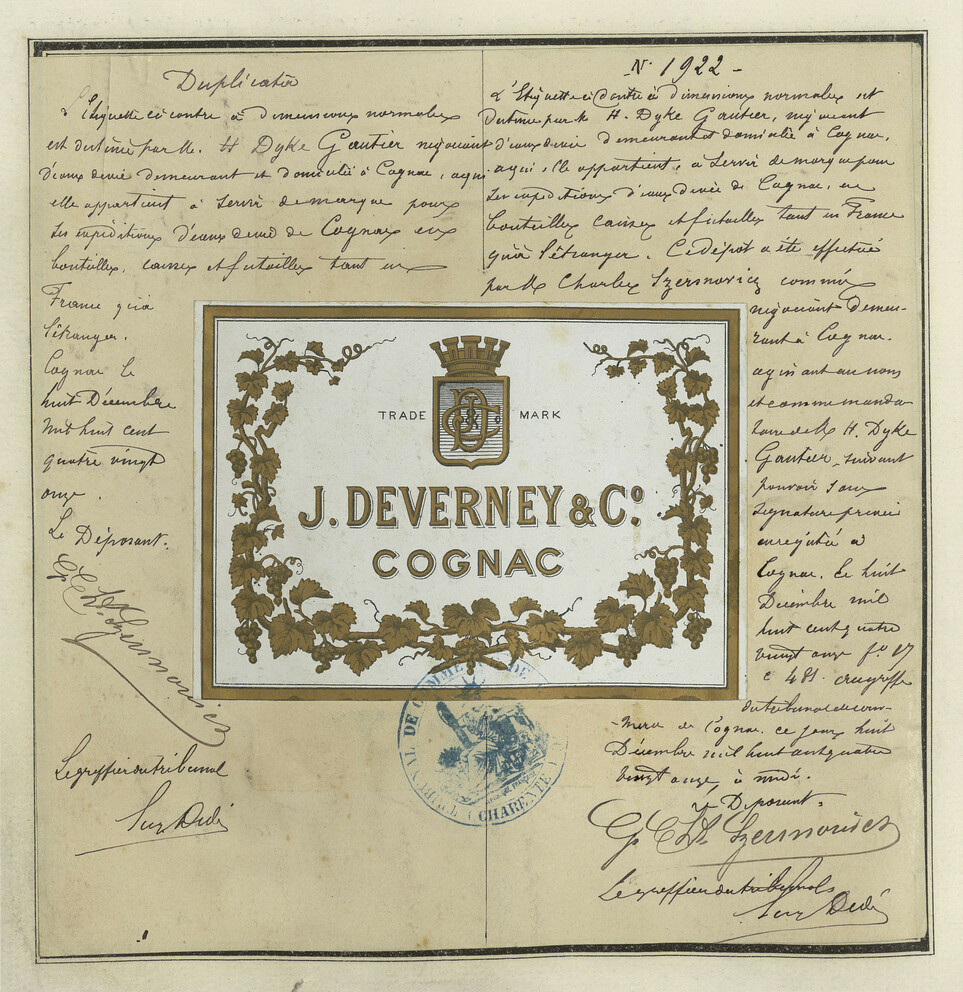 Duplicata
L'Etiquette ci contre à dimensions normales
est destinée par M. H Dyke Gautier négociant
d'eaux de vie demeurant et domicilié à Cognac, à qui
elle appartient à servir de marque pour
les expéditions d'eaux de vie de Cognac en
bouteilles, caisses et futailles tant en
France qu'à
l'étranger.
Cognac le
huit Décembre
mil huit cent
quatre vingt
onze.
Le Déposant.
Ch. Szermovicz
Le greffier du tribunal
N° 1922 -
L'Etiquette ci contre à dimensions normales est
destinée par M. H. Dyke Gautier, négociant
d'eaux de vie demeurant et domicilié à Cognac,
à qui elle appartient, à servir de marque pour
les expéditions d'eaux de vie de Cognac, en
bouteilles caisses et futailles tant en France
qu'à l'étranger. Ce dépot a été effectué
par M Charles Szermovicz commis
négociant demeu-
rant à Cognac.
agissant au nom
et comme manda
taire de M H. Dyke
Gautier, suivant
pouvoir sous
signature privée
enregistré à
Cognac. Le huit
Décembre mil
huit cent quatre
vingt onze f° 87
c 481. au greffe
du tribunal de com-
merce de Cognac. ce jour huit
Décembre mil huit cent quatre
vingt onze, à midi.
Le Déposant
Ch. Szermovicz
Le greffier du tribunal
TRADE MARK
J. DEVERNEY & Co.
COGNAC
TRIBUNAL DE COMMERCE DE
CHARENTE